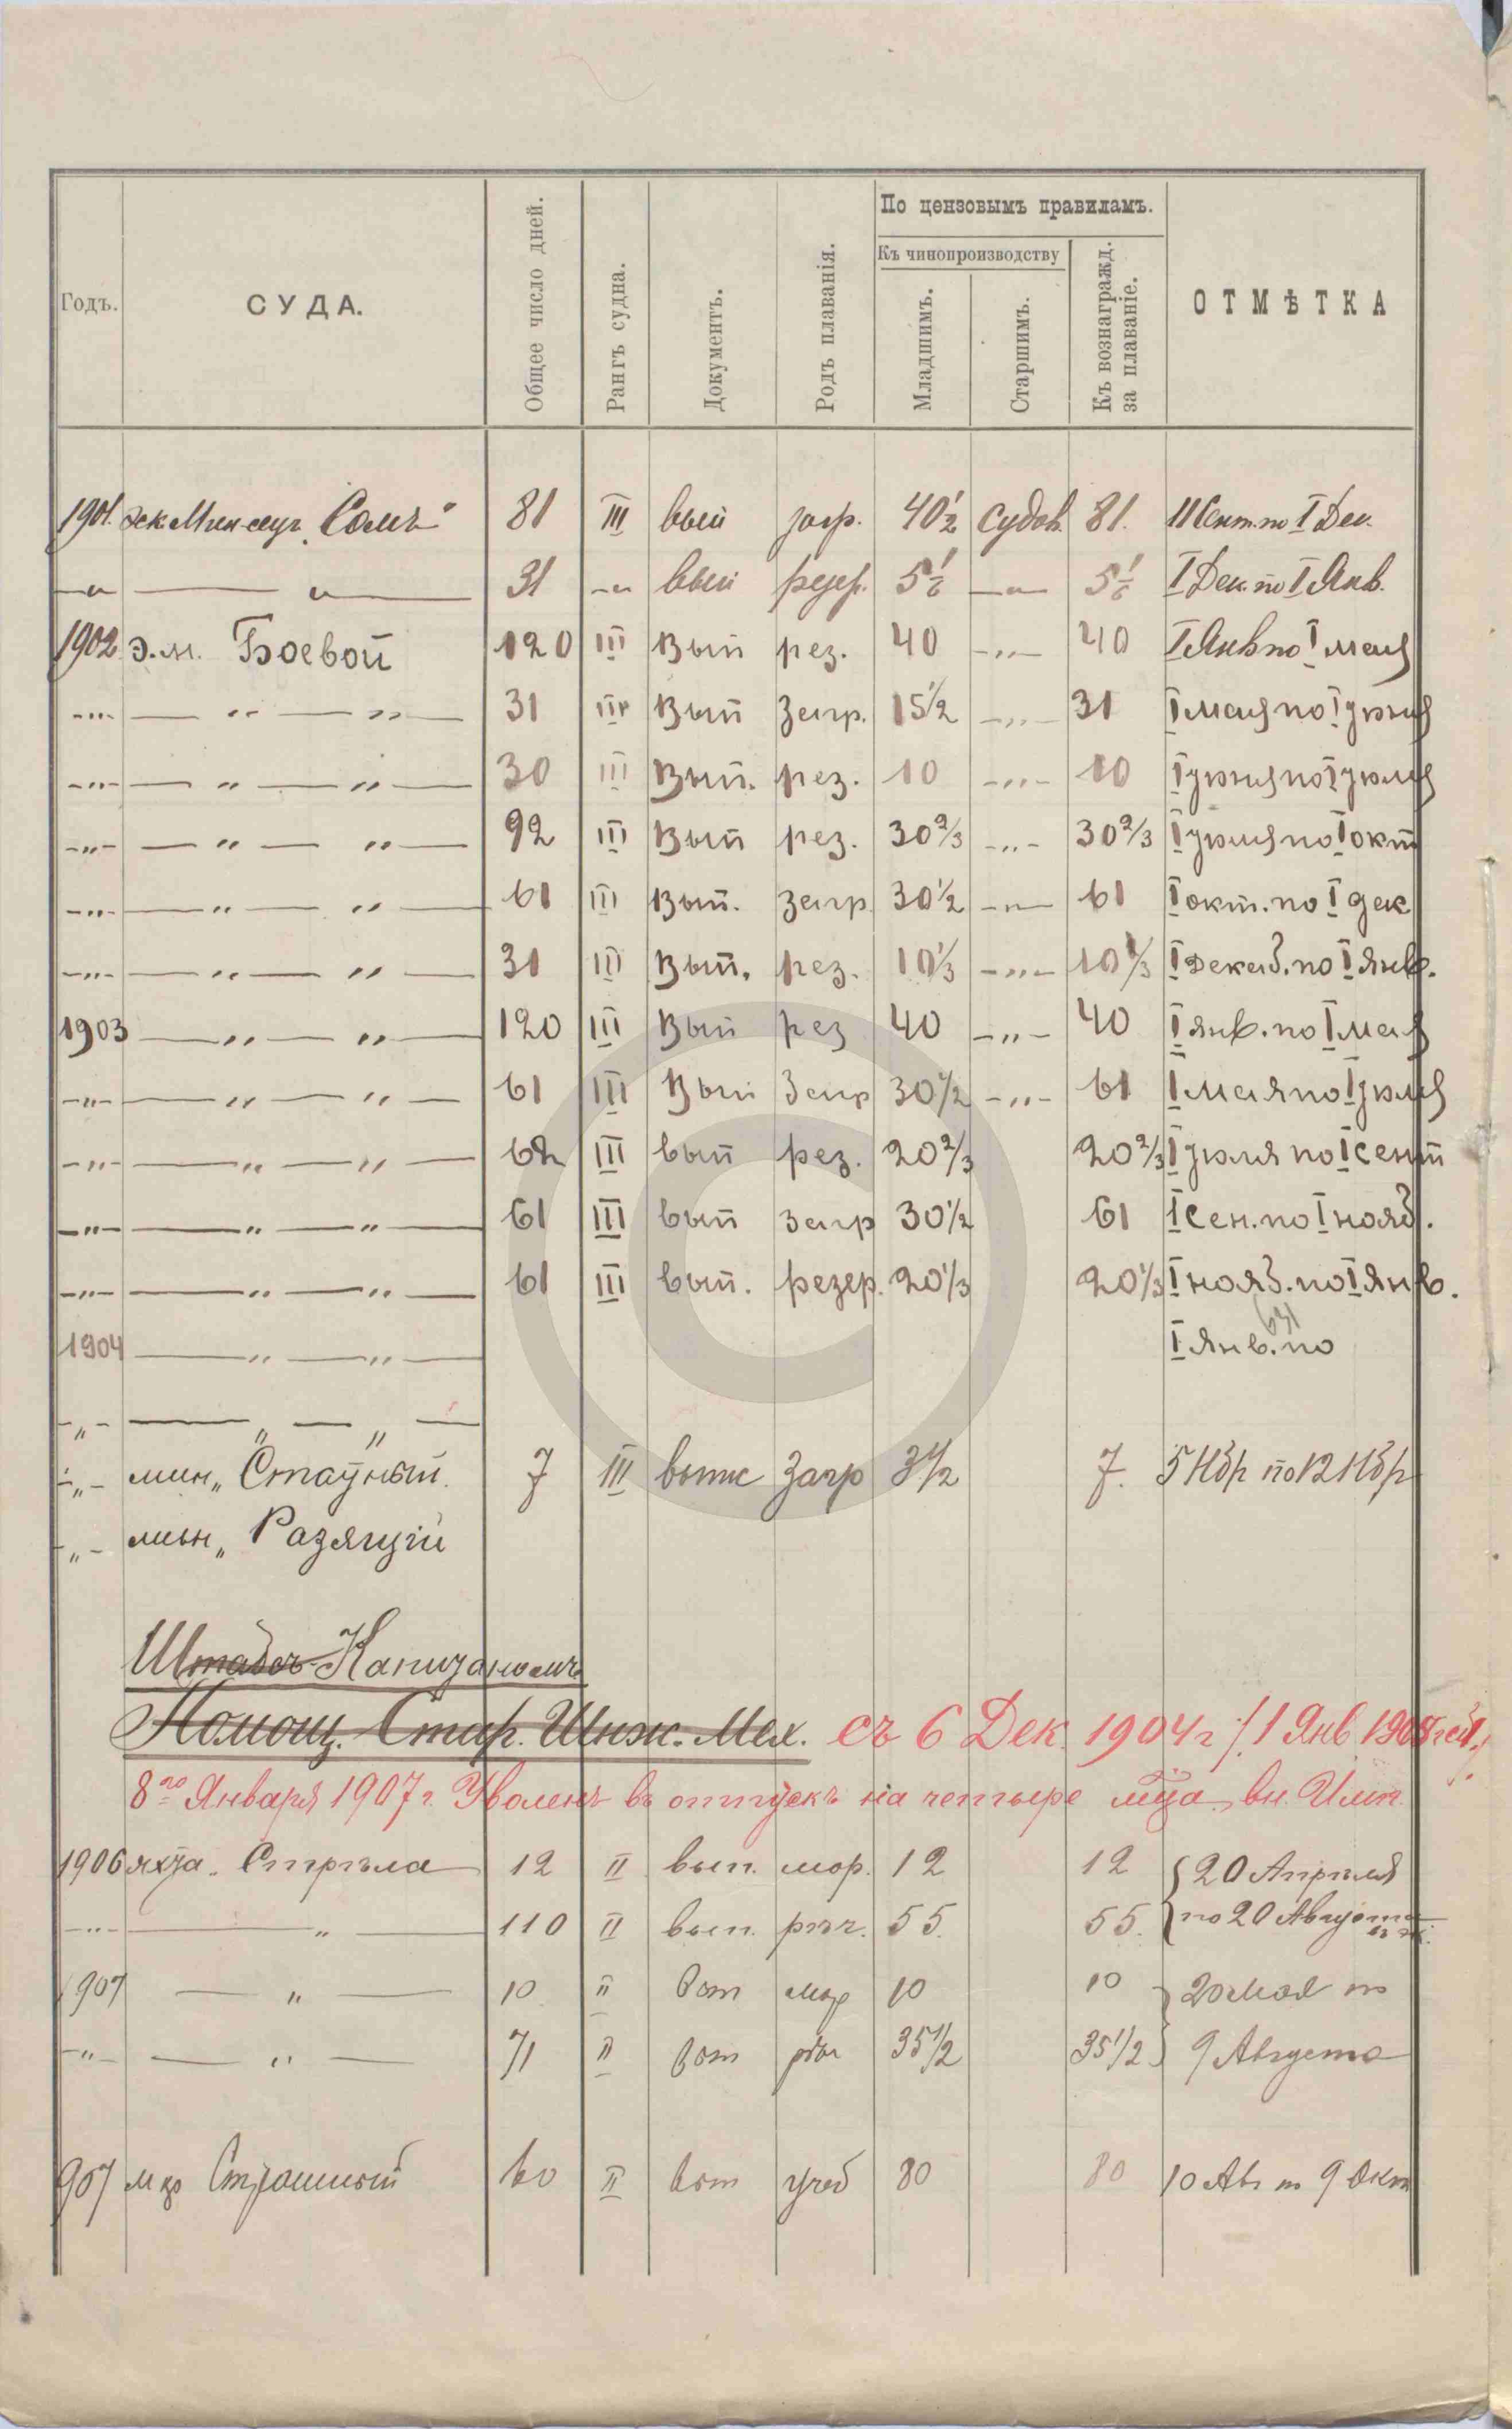 Годъ. СУДА. Общее число дней. Рангъ судна. Документъ. Родъ плаванія. По цензовымъ правиламъ. Къ чинопроизводству Младшимъ. Старшимъ. Къ вознагражд. за плаваніе. ОТМѢТКА
1901. эск. Мин. „Сомъ“ 81 III вып загр. 40 1/2 судов. 81. 11 Сент. по I Дек.
—„— „ 31 —„ вып резер. 5 1/6 —„— 5 1/6 I Дек. по I Янв.
1902 э.м. Боевой 120 III вып рез. 40 —„— 40 I Янв по I мая
—„— — „ — „ — 31 III вып загр. 15 1/2 —„— 31 I мая по I јюня
—„— — „ — „ — 30 III вып. рез. 10 —„— 10 I јюня по I јюля
—„— — „ — „ — 92 III вып рез. 30 2/3 —„— 30 2/3 I јюля по I окт
—„— — „ — „ — 61 III вып. загр 30 1/2 —„— 61 I окт. по I дек
—„— — „ — „ — 31 III вып. рез. 10 1/3 —„— 10 1/3 I декаб. по I янв.
1903 — „ — „ — 120 III вып рез 40 —„— 40 I янв. по I мая
—„— — „ — „ — 61 III вып загр 30 1/2 —„— 61 I мая по I јюля
—„— — „ — „ — 62 III вып рез. 20 2/3 20 2/3 I јюля по I сент
—„— — „ — „ — 61 III вып загр 30 1/2 61 I сен. по I нояб.
—„— — „ — „ — 61 III вып. резер. 20 1/3 20 1/3 I нояб. по I янв.
1904 — „ — „ — I янв. по
—„— — „ — „ —
—„— мин. „Статный 7 III вып загр 3 1/2 7. 5 Нбр по 12 Нбр
—„— мин. „Разящій
Штабсъ-Капитаномъ
Помощ. Стар. Инж. Мех. съ 6 Дек. 1904 г. 1 Янв 1905
8го Января 1907 г. Уволенъ въ отпускъ на четыре мца, вн. Имп.
1906 яхта „Стрѣла 12 II вып. мор. 12 12 { 20 Апрѣля
—„— — „ — 110 II вып. рѣч. 55. 55. по 20 Августа
1907 — „ — 10 II вып мор 10 10 } 20 мая по
—„— — „ — 71 II вып рѣч 35 1/2 35 1/2 } 9 Августа
907 Страшный 60 II вып учеб 80 80 10 Авг по 9 Окт